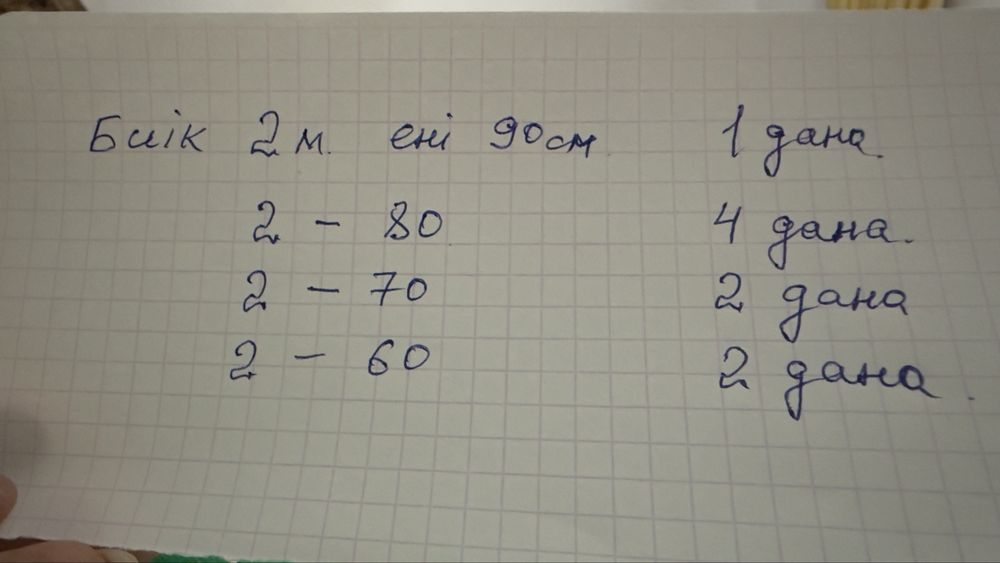 Биік 2 м. ені 90 см 1 дана.
2 – 80 4 дана.
2 – 70 2 дана
2 – 60 2 дана.